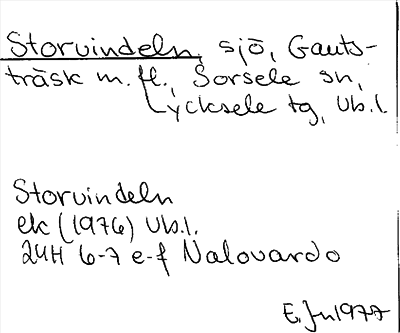 Storvindeln, sjö, Gauts-
träsk m.fl., Sorsele sn,
Lycksele tg, Vb.l.
Storvindeln
ek (1976) Vb.l.
24H 6-7 e-f Nalovardo
E. Jn 1977